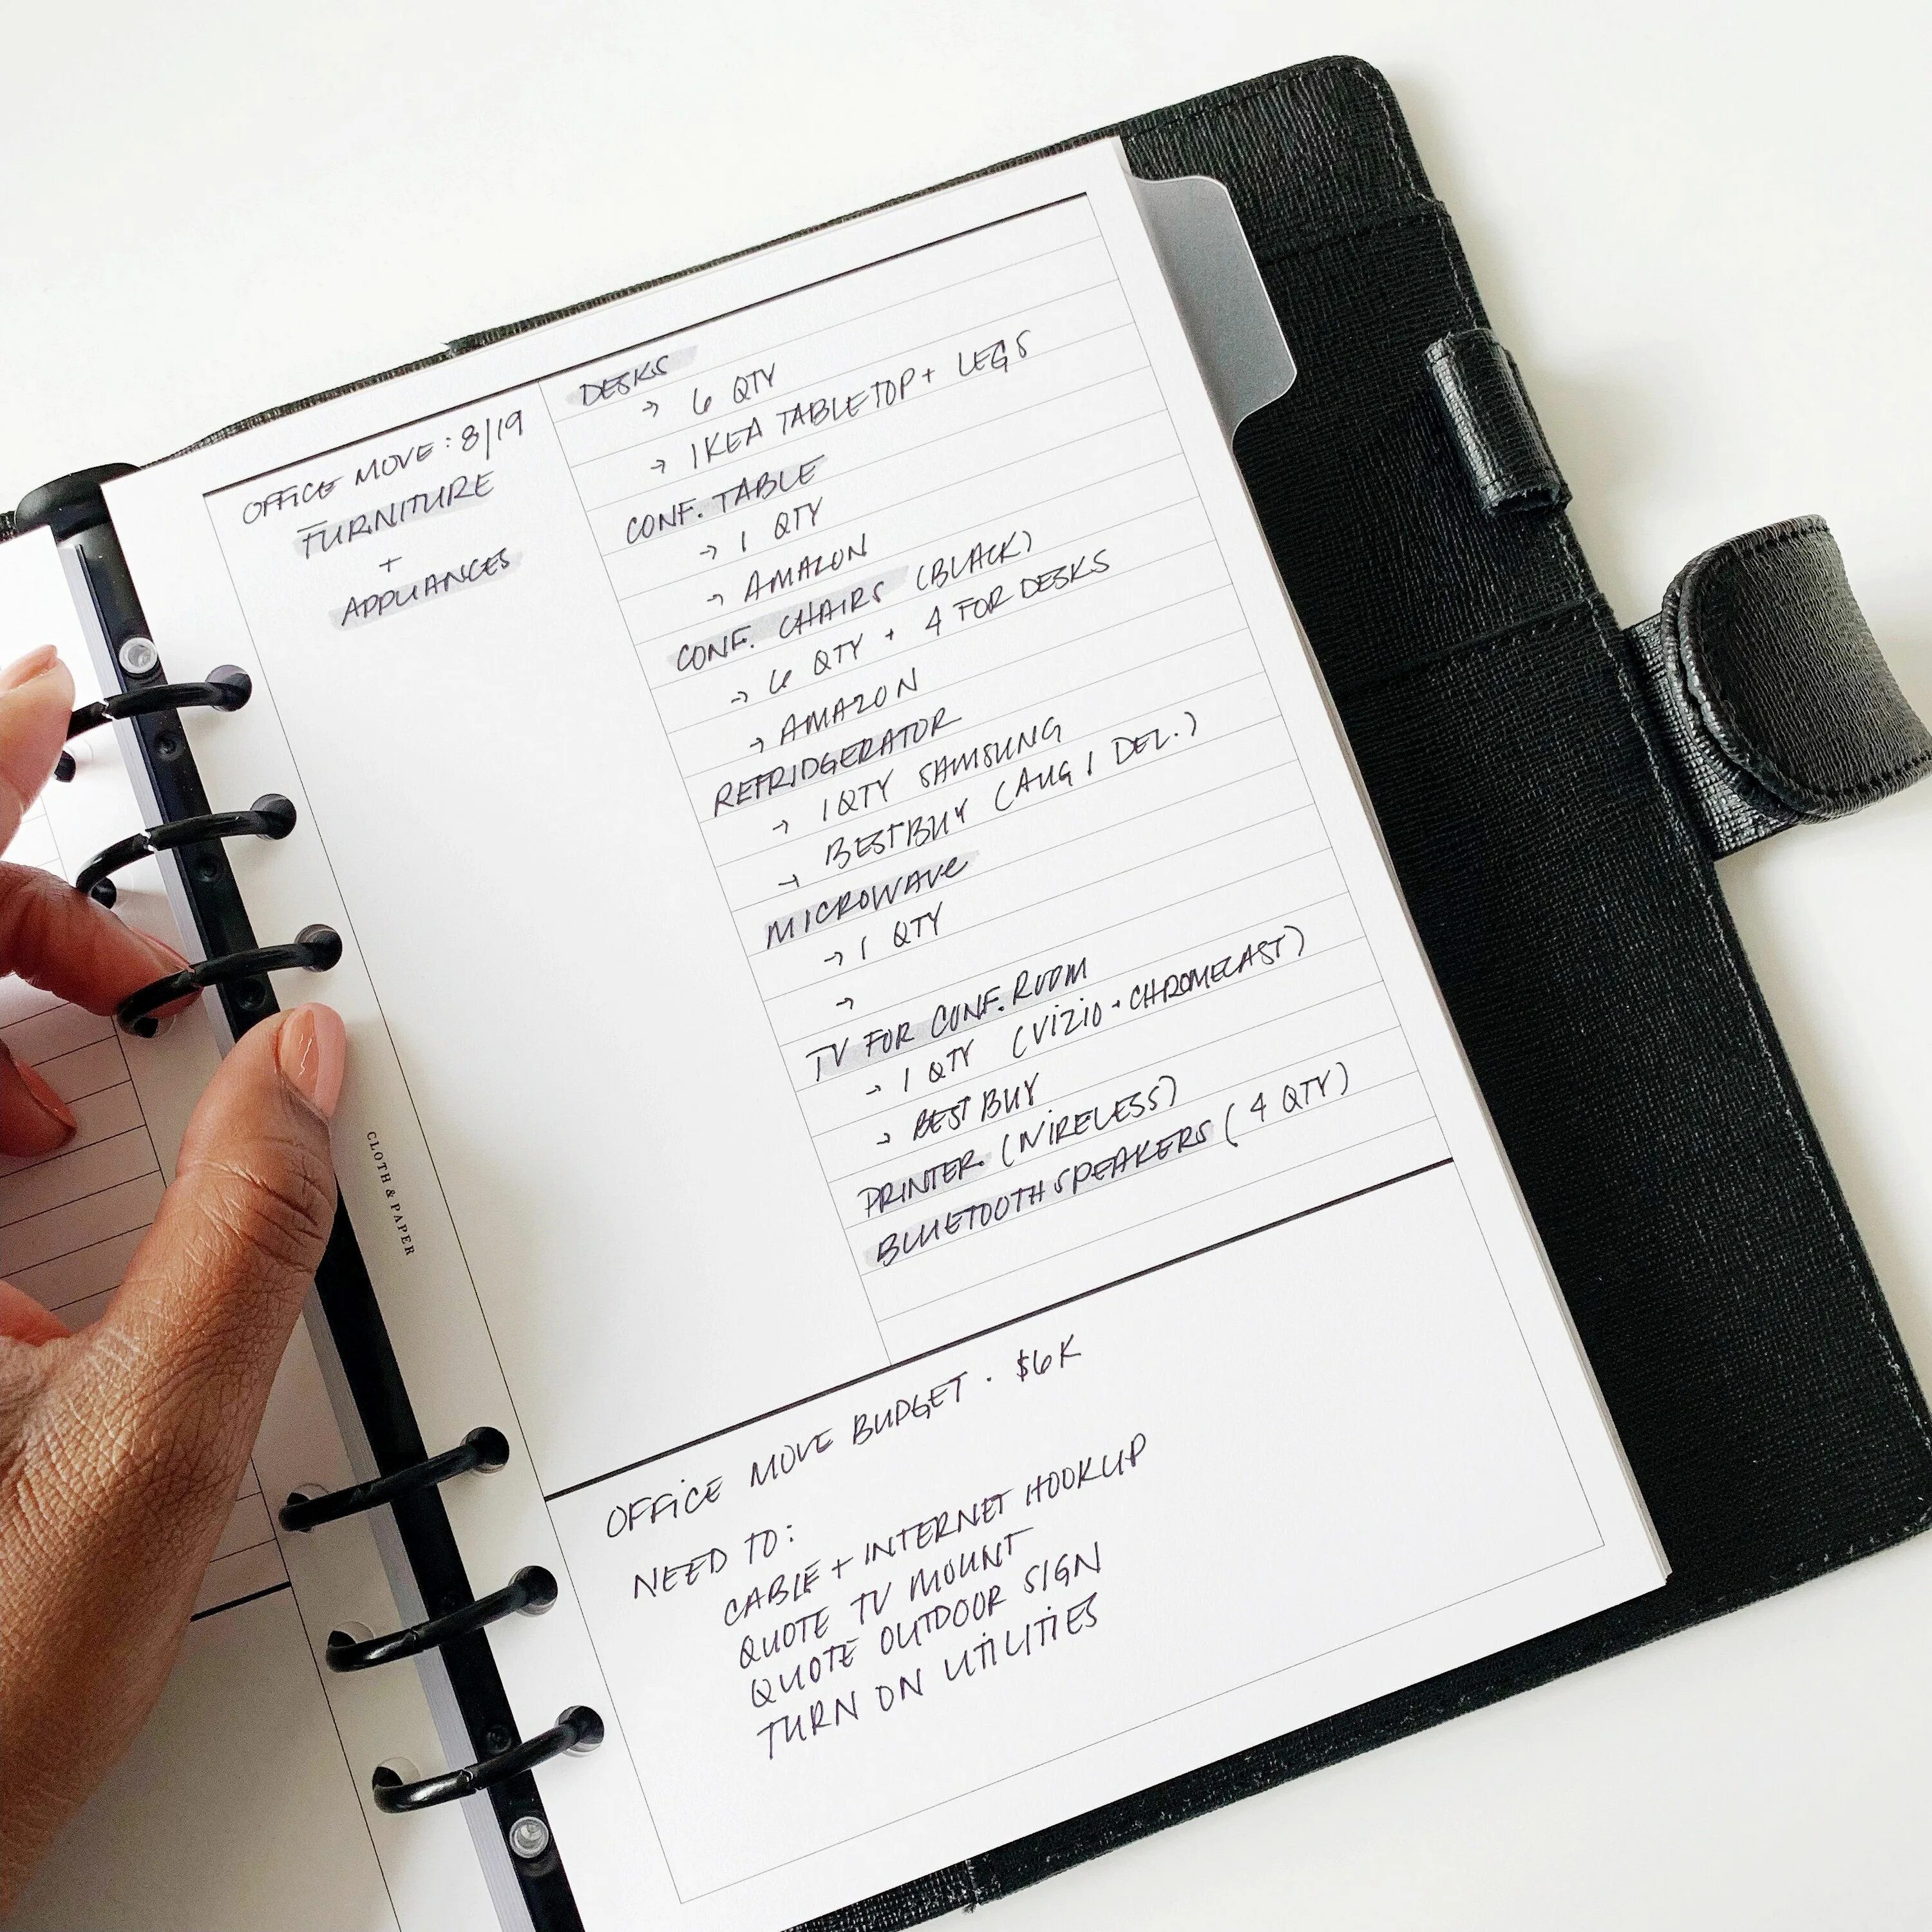 OFFICE MOVE: 8/19
FURNITURE
+
APPLIANCES
DESKS
→ 6 QTY
→ IKEA TABLETOP + LEGS
CONF. TABLE
→ 1 QTY
→ AMAZON
CONF. CHAIRS (BLACK)
→ 6 QTY + 4 FOR DESKS
→ AMAZON
REFRIDGERATOR
→ 1 QTY SAMSUNG
→ BESTBUY (AUG 1 DEL.)
MICROWAVE
→ 1 QTY
→
TV FOR CONF. ROOM
→ 1 QTY (VIZIO + CHROMECAST)
→ BEST BUY
PRINTER (WIRELESS)
BLUETOOTH SPEAKERS (4 QTY)
OFFICE MOVE BUDGET · $6K
NEED TO:
CABLE + INTERNET HOOKUP
QUOTE TV MOUNT
QUOTE OUTDOOR SIGN
TURN ON UTILITIES
CLOTH & PAPER